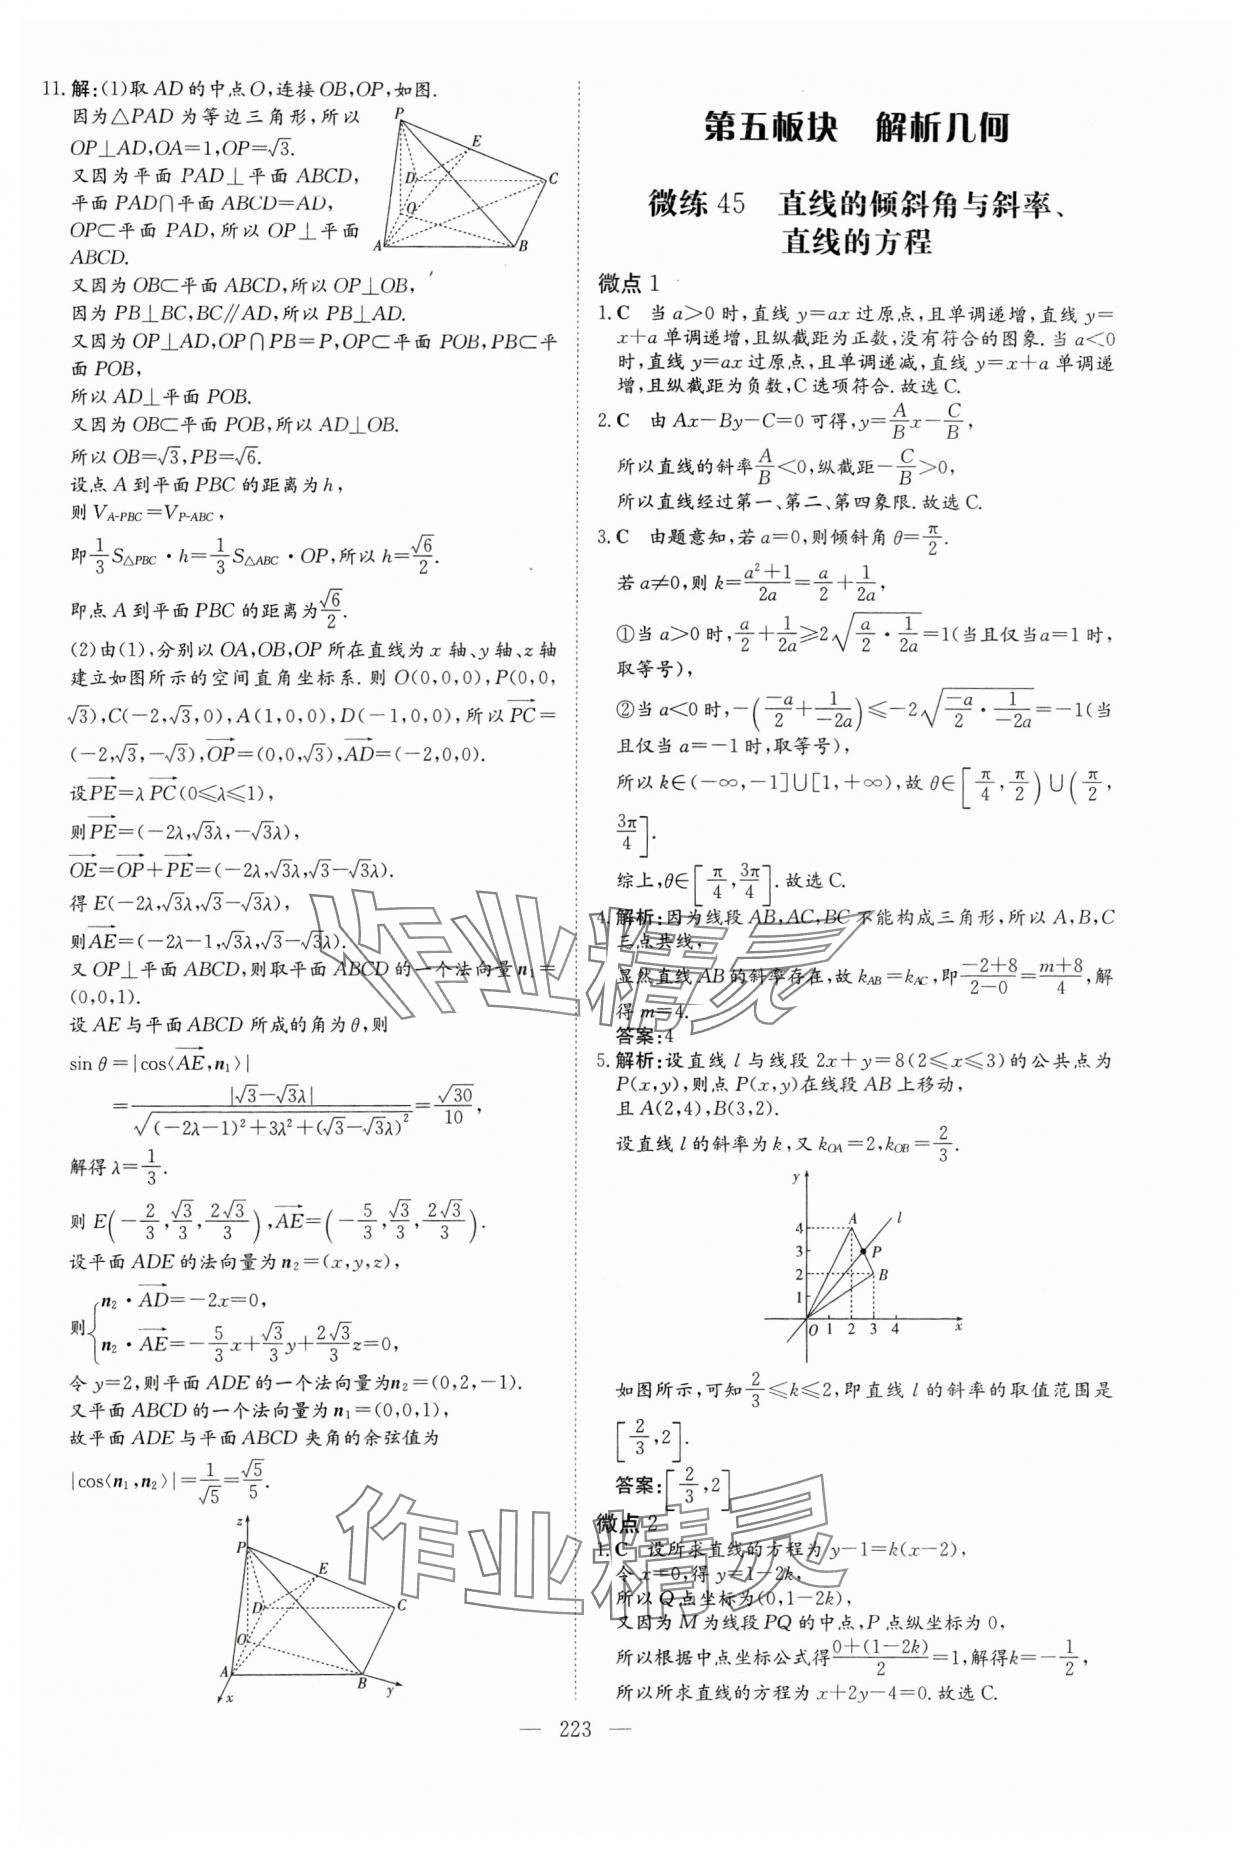 11. 解:(1)取 AD 的中点 O,连接 OB,OP,如图.
因为△PAD 为等边三角形,所以
OP⊥AD,OA=1,OP=√3.
又因为平面 PAD⊥平面 ABCD,
平面 PAD∩平面 ABCD=AD,
OP⊂平面 PAD,所以 OP⊥平面
ABCD.
又因为 OB⊂平面 ABCD,所以 OP⊥OB,
因为 PB⊥BC,BC∥AD,所以 PB⊥AD.
又因为 OP⊥AD,OP∩PB=P,OP⊂平面 POB,PB⊂平
面 POB,
所以 AD⊥平面 POB.
又因为 OB⊂平面 POB,所以 AD⊥OB.
所以 OB=√3,PB=√6.
设点 A 到平面 PBC 的距离为 h,
则 V_{A-PBC}=V_{P-ABC},
即 1/3 S_{△PBC}·h=1/3 S_{△ABC}·OP,所以 h=√6/2.
即点 A 到平面 PBC 的距离为 √6/2.
(2)由(1),分别以 OA,OB,OP 所在直线为 x 轴、y 轴、z 轴
建立如图所示的空间直角坐标系.则 O(0,0,0),P(0,0,
√3),C(-2,√3,0),A(1,0,0),D(-1,0,0),所以 PC→=
(-2,√3,-√3),OP→=(0,0,√3),AD→=(-2,0,0).
设 PE→=λ PC→(0≤λ≤1),
则 PE→=(-2λ,√3λ,-√3λ),
OE→=OP→+PE→=(-2λ,√3λ,√3-√3λ).
得 E(-2λ,√3λ,√3-√3λ),
则 AE→=(-2λ-1,√3λ,√3-√3λ).
又 OP⊥平面 ABCD,则取平面 ABCD 的一个法向量 n₁=
(0,0,1).
设 AE 与平面 ABCD 所成的角为 θ,则
sin θ=|cos⟨AE→,n₁⟩|
=|√3-√3λ|/√((-2λ-1)²+3λ²+(√3-√3λ)²)=√30/10,
解得 λ=1/3.
则 E(-2/3,√3/3,2√3/3),AE→=(-5/3,√3/3,2√3/3).
设平面 ADE 的法向量为 n₂=(x,y,z),
则{n₂·AD→=-2x=0,
n₂·AE→=-5/3x+√3/3y+2√3/3z=0,
令 y=2,则平面 ADE 的一个法向量为 n₂=(0,2,-1).
又平面 ABCD 的一个法向量为 n₁=(0,0,1),
故平面 ADE 与平面 ABCD 夹角的余弦值为
|cos⟨n₁,n₂⟩|=1/√5=√5/5.
P
E
D
C
O
A
B
z
P
E
D
C
O
A
B
x
y
第五板块 解析几何
微练 45 直线的倾斜角与斜率、
直线的方程
微点 1
1. C 当 a>0 时,直线 y=ax 过原点,且单调递增,直线 y=
x+a 单调递增,且纵截距为正数,没有符合的图象.当 a<0
时,直线 y=ax 过原点,且单调递减,直线 y=x+a 单调递
增,且纵截距为负数,C 选项符合.故选 C.
2. C 由 Ax-By-C=0 可得,y=A/B x-C/B,
所以直线的斜率 A/B<0,纵截距-C/B>0,
所以直线经过第一、第二、第四象限.故选 C.
3. C 由题意知,若 a=0,则倾斜角 θ=π/2.
若 a≠0,则 k=(a²+1)/2a=a/2+1/2a,
①当 a>0 时,a/2+1/2a≥2√(a/2·1/2a)=1(当且仅当a=1 时,
取等号),
②当 a<0 时,-(-a/2+1/-2a)≤-2√(-a/2·1/-2a)=-1(当
且仅当 a=-1 时,取等号),
所以 k∈(-∞,-1]∪[1,+∞),故 θ∈[π/4,π/2)∪(π/2,
3π/4].
综上,θ∈[π/4,3π/4].故选 C.
4. 解析:因为线段 AB,AC,BC 不能构成三角形,所以 A,B,C
三点共线,
显然直线 AB 的斜率存在,故 k_{AB}=k_{AC},即(-2+8)/(2-0)=(m+8)/4,解
得 m=4.
答案:4
5. 解析:设直线 l 与线段 2x+y=8(2≤x≤3)的公共点为
P(x,y),则点 P(x,y)在线段 AB 上移动,
且 A(2,4),B(3,2).
设直线 l 的斜率为 k,又 k_{OA}=2,k_{OB}=2/3.
y
A
l
P
B
4
3
2
1
O 1 2 3 4 x
如图所示,可知 2/3≤k≤2,即直线 l 的斜率的取值范围是
[2/3,2].
答案:[2/3,2]
微点 2
1. C 设所求直线的方程为 y-1=k(x-2),
令 x=0,得 y=1-2k,
所以 Q 点坐标为(0,1-2k),
又因为 M 为线段 PQ 的中点,P 点纵坐标为 0,
所以根据中点坐标公式得(0+(1-2k))/2=1,解得k=-1/2,
所以所求直线的方程为 x+2y-4=0.故选 C.
— 223 —
作业精灵
作业精灵